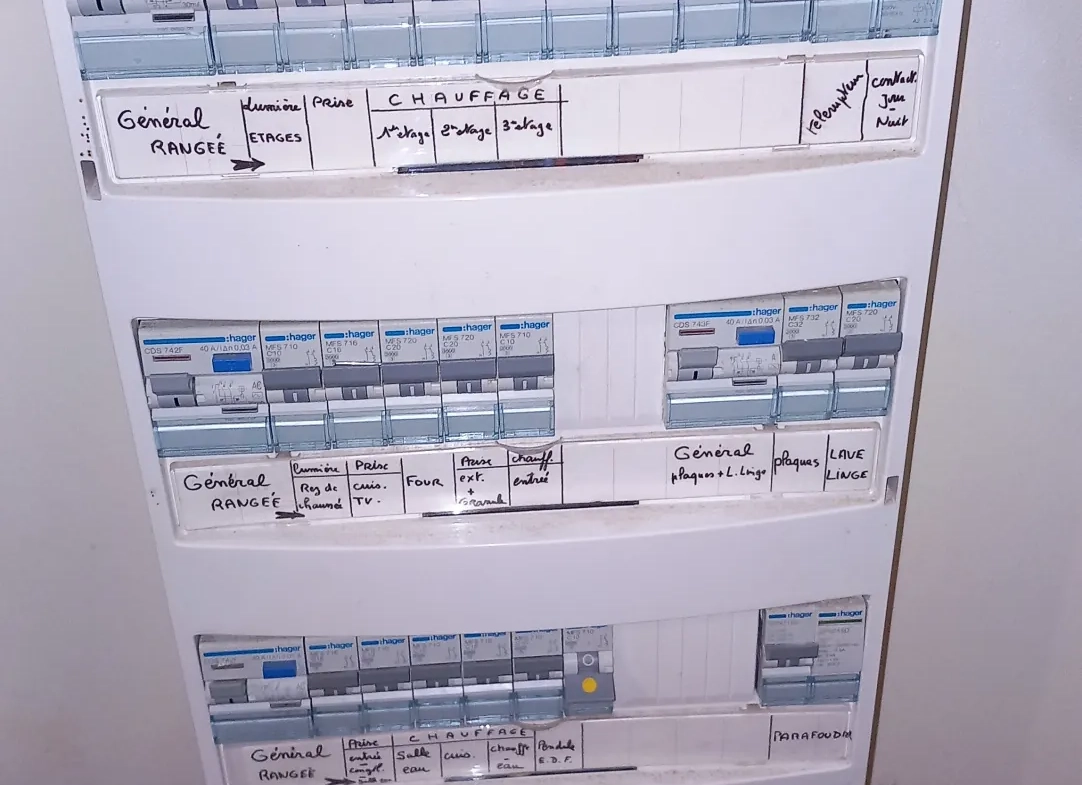 Général
RANGEÉ
Lumière
ETAGES
Prise
CHAUFFAGE
1er etage
2me etage
3me etage
Telerupteur
contact.
Jour
-
Nuit
:hager
CDS 742F 40 A/IΔn 0,03 A
:hager
MFS 710
C10
:hager
MFS 716
C16
:hager
MFS 720
C20
:hager
MFS 720
C20
:hager
MFS 710
C10
:hager
CDS 743F 40 A/IΔn 0,03 A
:hager
MFS 732
C32
:hager
MFS 720
C20
Général
RANGEÉ
Lumière
Rez de
chaussée
Prise
cuis.
TV.
FOUR
Prise
ext.
+
chauff.
entrée
Général
plaques + L. Linge
plaques
LAVE
LINGE
:hager
:hager
:hager
:hager
:hager
:hager
:hager
:hager
Général
RANGEÉ
Prise
entrée
congel.
CHAUFFAGE
Salle
eau
cuis.
chauffe
-
eau
Pendule
E.D.F.
PARAFOUDRE